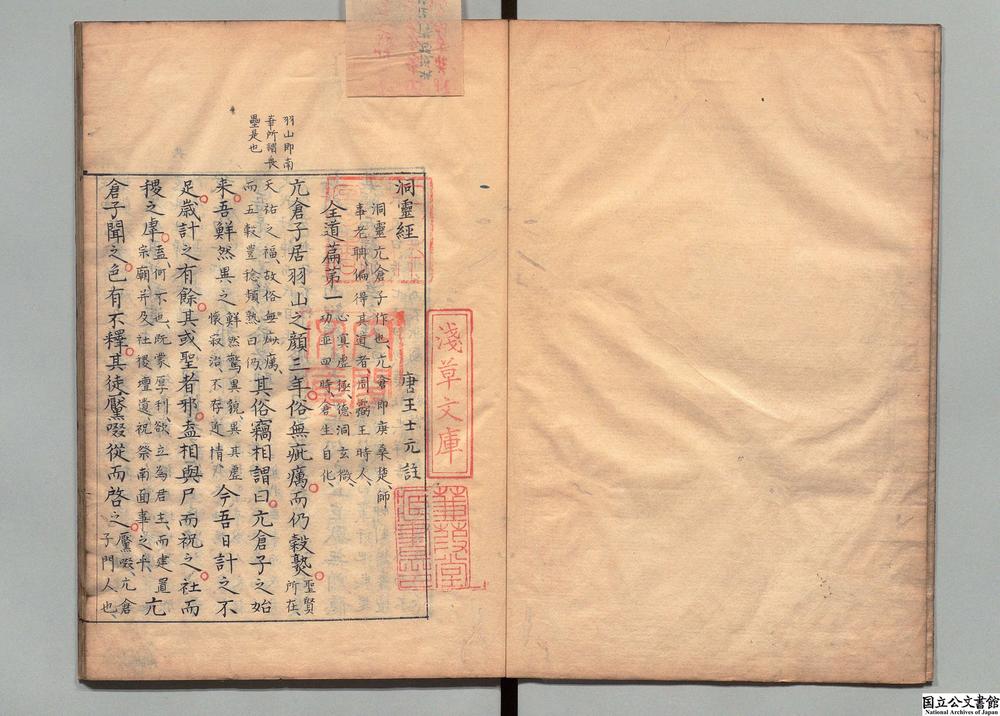 洞靈經
唐王士元註
洞靈亢倉子作也、亢倉即庚桑楚、師
事老聃、偏得其道者、周靈王時人、
全道篇第一
心冥虛極、德洞玄微、
功並四時、倉生自化、
亢倉子居羽山之顏三年俗無疵癘而仍穀熟
聖賢所在、
天祐之福、故俗無疵癘、
而五穀豐稔、頻熟曰仍、
其俗竊相謂曰亢倉子之始
来吾鮮然異之
鮮然驚異貌、異其虛
懷寂泊、不存近情、
今吾日計之不
足歲計之有餘其或聖者邪盍相與尸而祝之社而
稷之虖
盍、何不也、既蒙厚利、欲立為君主、而建置
宗廟、并及社稷壇遺、祝祭南面事之乎、
亢
倉子聞之色有不釋其徒驪啜從而啓之
驪啜、亢倉
子門人也、
羽山即南
華所謂畏
壘是也
淺草文庫
蒹葭堂
国立公文書館
National Archives of Japan